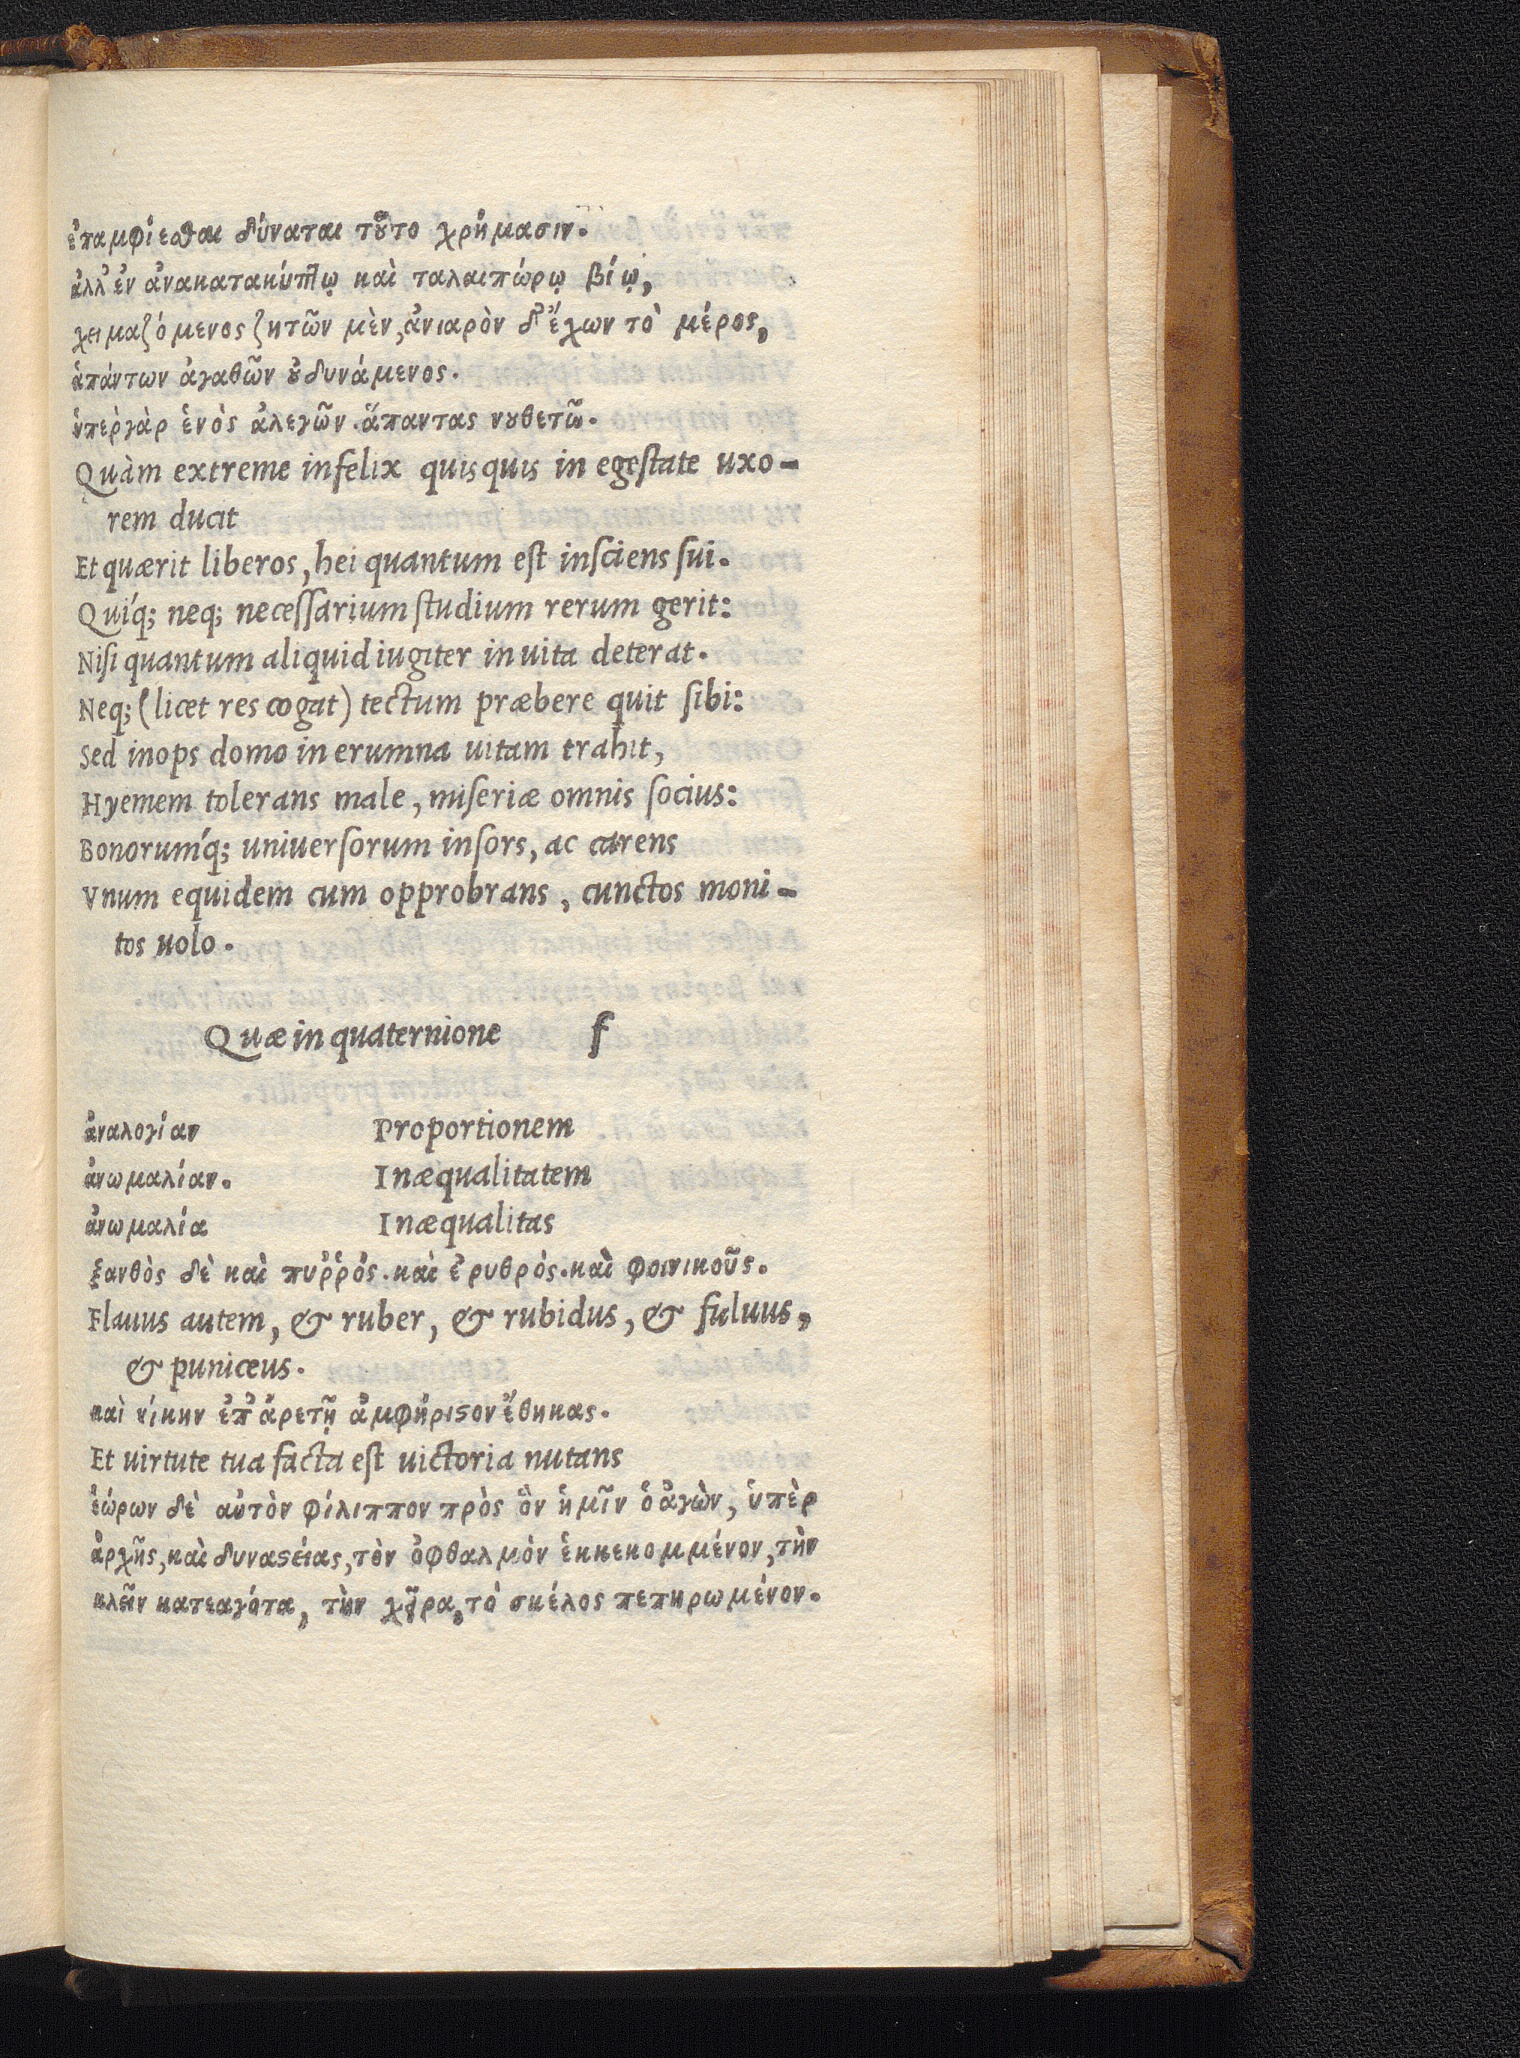 ἐπαμφίεσθαι δύναται τȣ̃το χρήμασιν.
ἀλλ᾽ ἐν ἀνακατακύπτῳ καὶ ταλαιπώρῳ βίῳ,
χειμαζόμενος ζητῶν μὲν, ἀνιαρὸν δ᾽ ἔχων τὸ μέρος,
ἁπάντων ἀγαθῶν ȣ̓ δυνάμενος.
ὑπὲρ γὰρ ἑνὸς ἀλεγῶν. ἅπαντας νȣθετῶ.
Quàm extreme infelix quisquis in egestate uxo-
rem ducit
Et quærit liberos, hei quantum est insciens sui.
Quíq; neq; necessarium studium rerum gerit:
Nisi quantum aliquid iugiter in uita deterat.
Neq; (licet res cogat) tectum præbere quit sibi:
Sed inops domo in erumna uitam trahit,
Hyemem tolerans male, miseriæ omnis socius:
Bonorumq́; uniuersorum insors, ac carens
Vnum equidem cum opprobrans, cunctos moni-
tos uolo.
Quæ in quaternione f
ἀναλογίαν Proportionem
ἀνωμαλίαν. Inæqualitatem
ἀνωμαλία Inæqualitas
ξανθὸς δὲ καὶ πυῤῥός. καὶ ἐρυθρός. καὶ φοινικοῦς.
Flauus autem, & ruber, & rubidus, & fuluus,
& puniceus.
καὶ νίκην ἐπ᾽ ἀρετῇ ἀμφήριϛον ἔθηκας.
Et uirtute tua facta est uictoria nutans
ἑώρων δὲ αὐτὸν φίλιππον πρὸς ὃν ἡμῖν ὁ ἀγὼν, ὑπὲρ
ἀρχῆς, καὶ δυναϛείας, τὸν ὀφθαλμὸν ἐκκεκομμένον, τὴν
κλεῖν κατεαγότα, τὴν χεῖρα, τὸ σκέλος πεπηρωμένον.